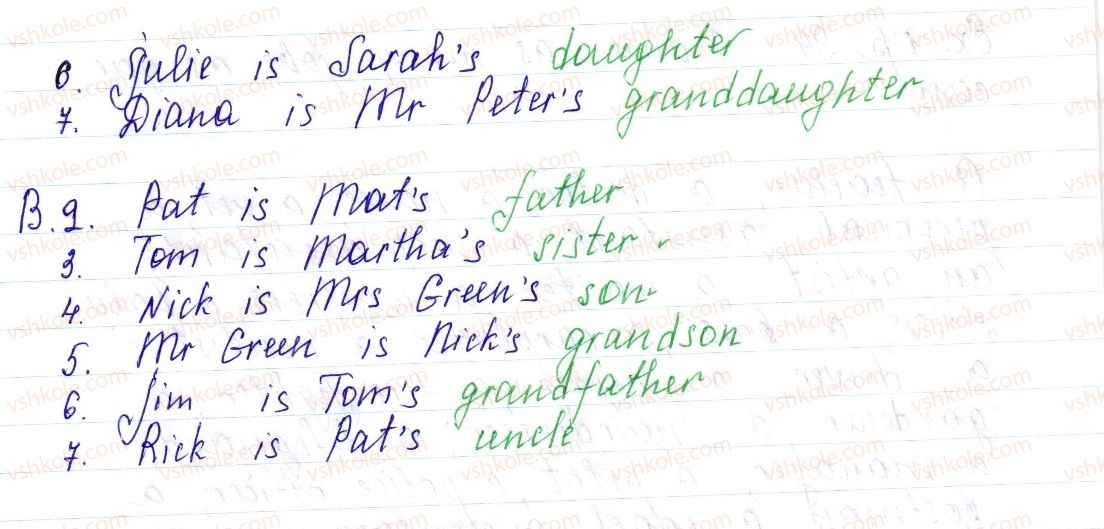 6. Julie is Sarah's daughter
7. Diana is Mr Peter's granddaughter
B. 2. Pat is Mat's father
3. Tom is Martha's sister.
4. Nick is Mrs Green's son.
5. Mr Green is Nick's grandson
6. Jim is Tom's grandfather
7. Rick is Pat's uncle